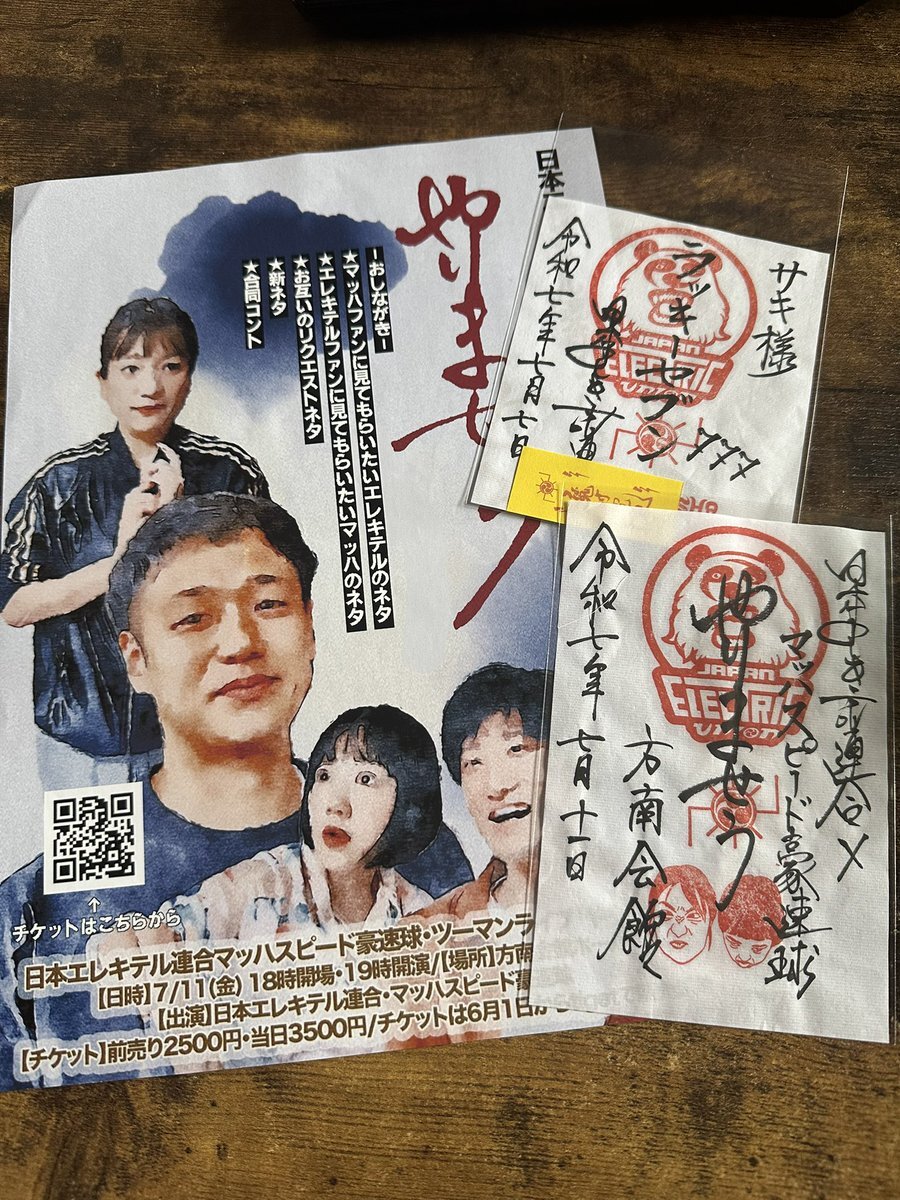 日本
やりませう
-おしながき-
★マッハファンに見てもらいたいエレキテルのネタ
★エレキテルファンに見てもらいたいマッハのネタ
★お互いのリクエストネタ
★新ネタ
★合同コント
↑
チケットはこちらから
日本エレキテル連合マッハスピード豪速球・ツーマンラ
【日時】7/11(金) 18時開場・19時開演/【場所】方南
【出演】日本エレキテル連合・マッハスピード豪
【チケット】前売り2500円・当日3500円/チケットは6月1日か
サキ様
ラッキーセブン
令和七年七月七日
JAPAN
ELECTRIC
UNION
日本エレキテル連合×
マッハスピード豪速球
やりませう
方南会館
令和七年七月十一日
JAPAN
ELECTRIC
UNION